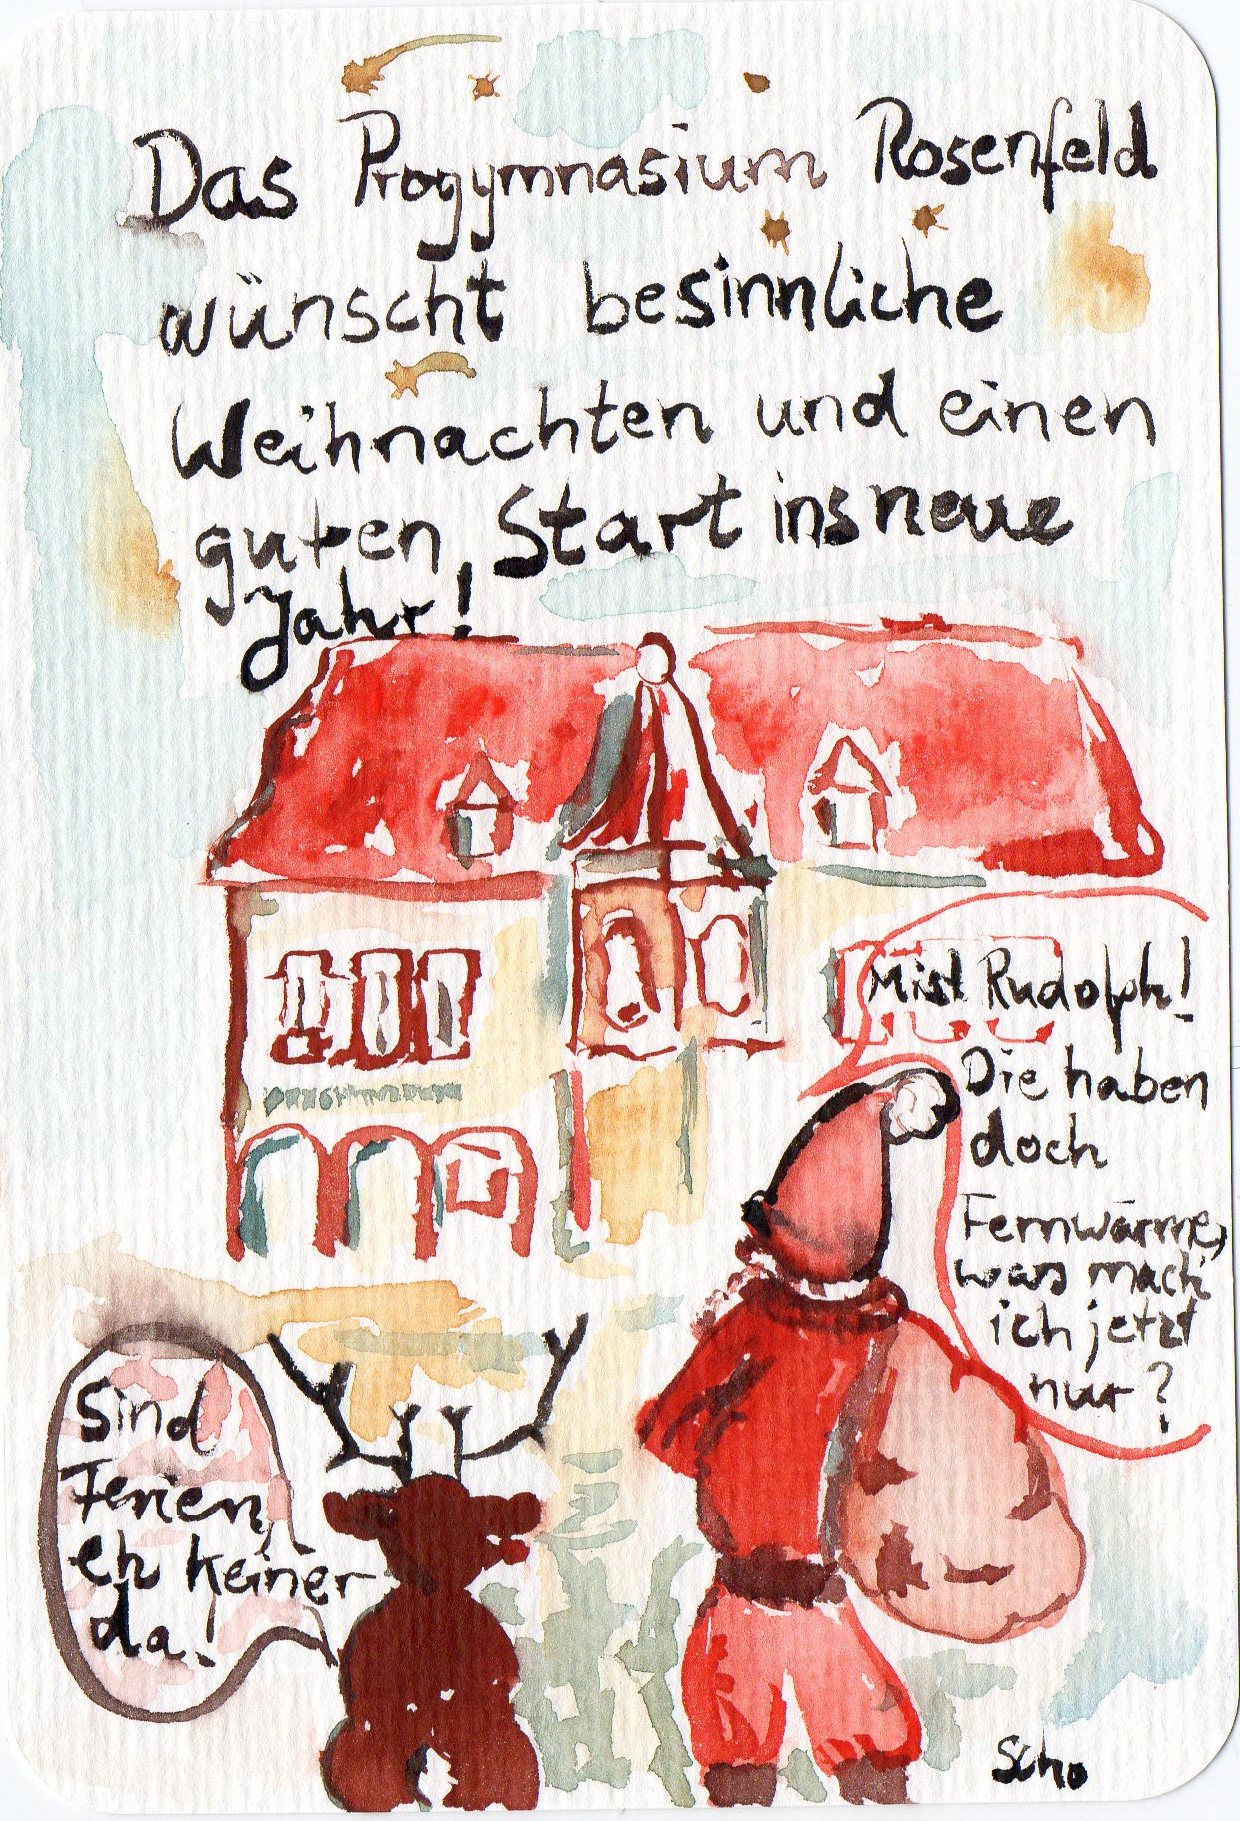 Das Progymnasium Rosenfeld
wünscht besinnliche
Weihnachten und einen
guten Start ins neue
Jahr!
Mist Rudolph!
Die haben
doch
Fernwärme,
was mach
ich jetzt
nur?
Sind
Ferien,
eh keiner
da!
Scho